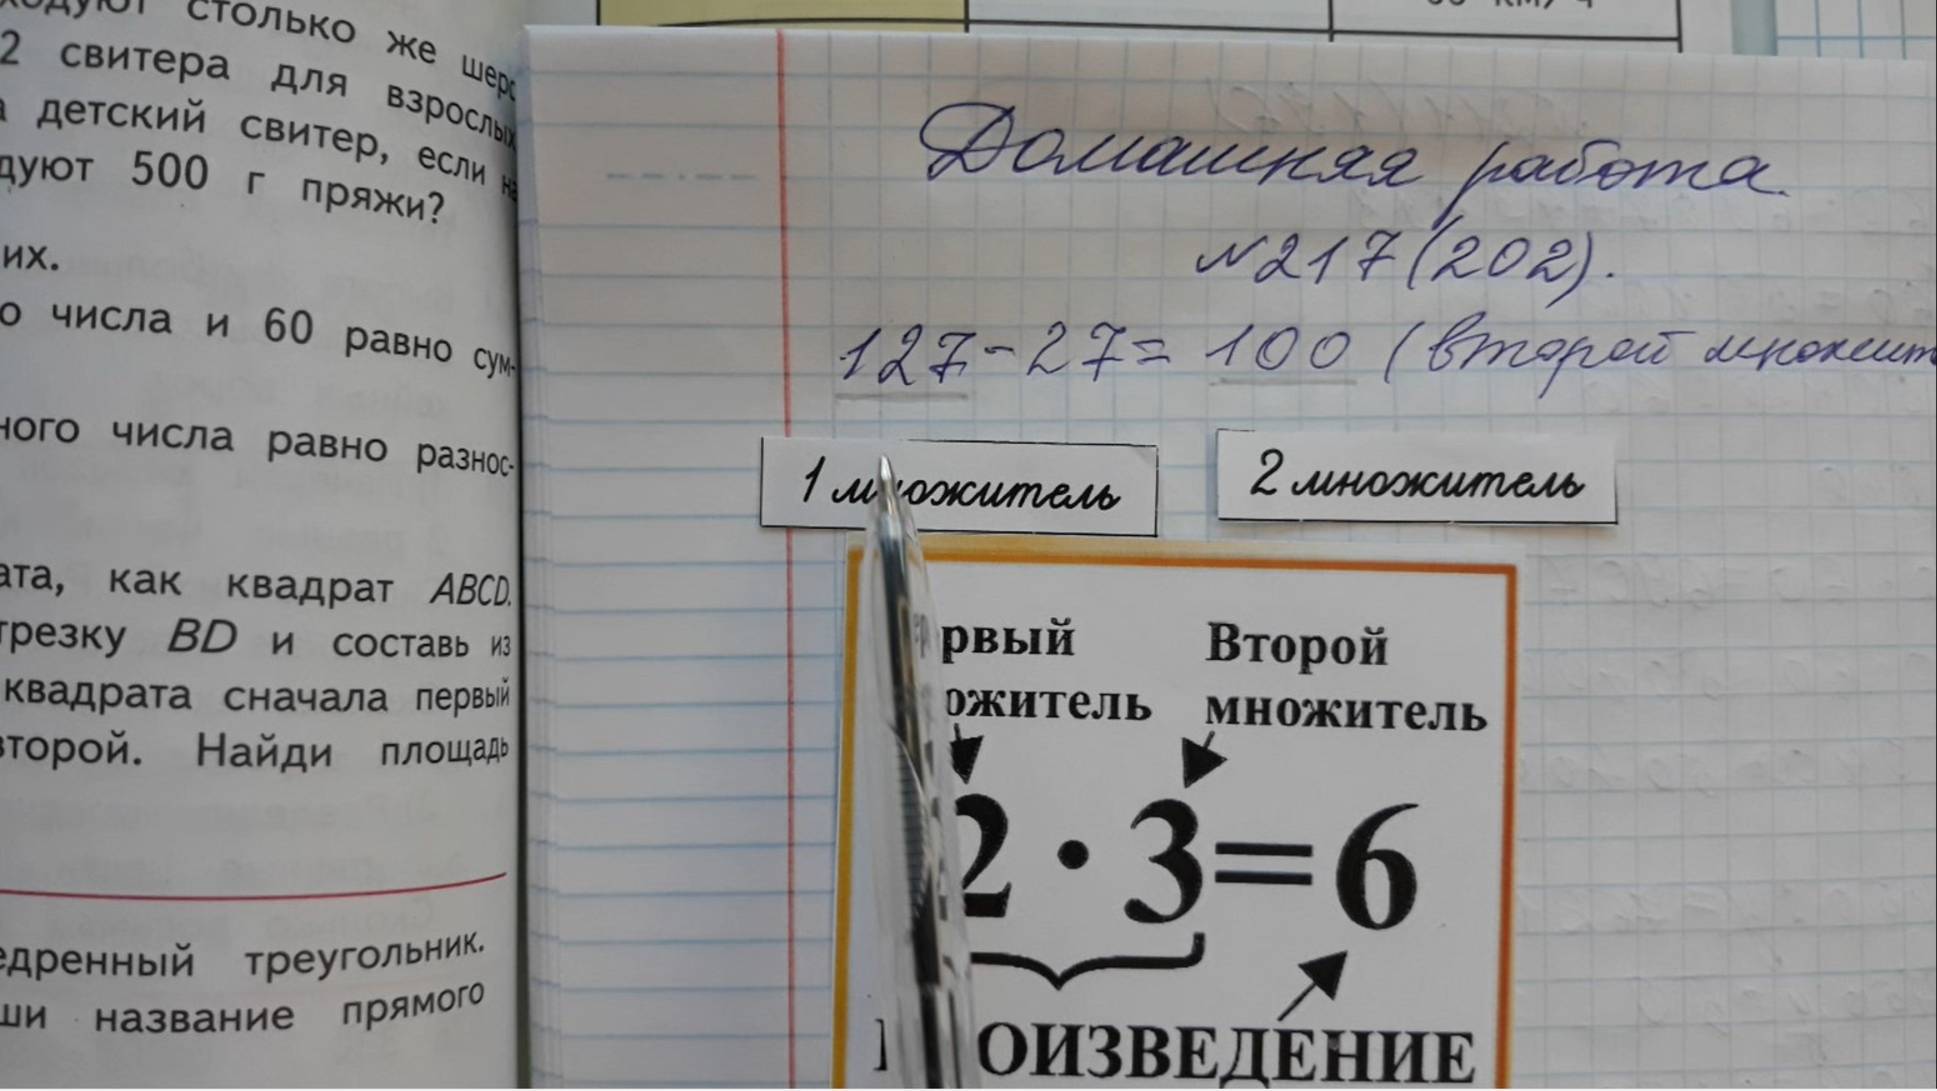 столько же
2 свитера для взрослых
детский свитер, если
500 г пряжи?
их.
о числа и 60 равно сум-
ного числа равно разнос-
как квадрат ABCD.
BD и составь из
квадрата сначала первый
второй. Найди площадь
треугольник.
название прямого
Домашняя работа
№217(202).
127-27=100 (второй множит
1 множитель
2 множитель
рвый Второй
ожитель множитель
2·3=6
ОИЗВЕДЕНИЕ